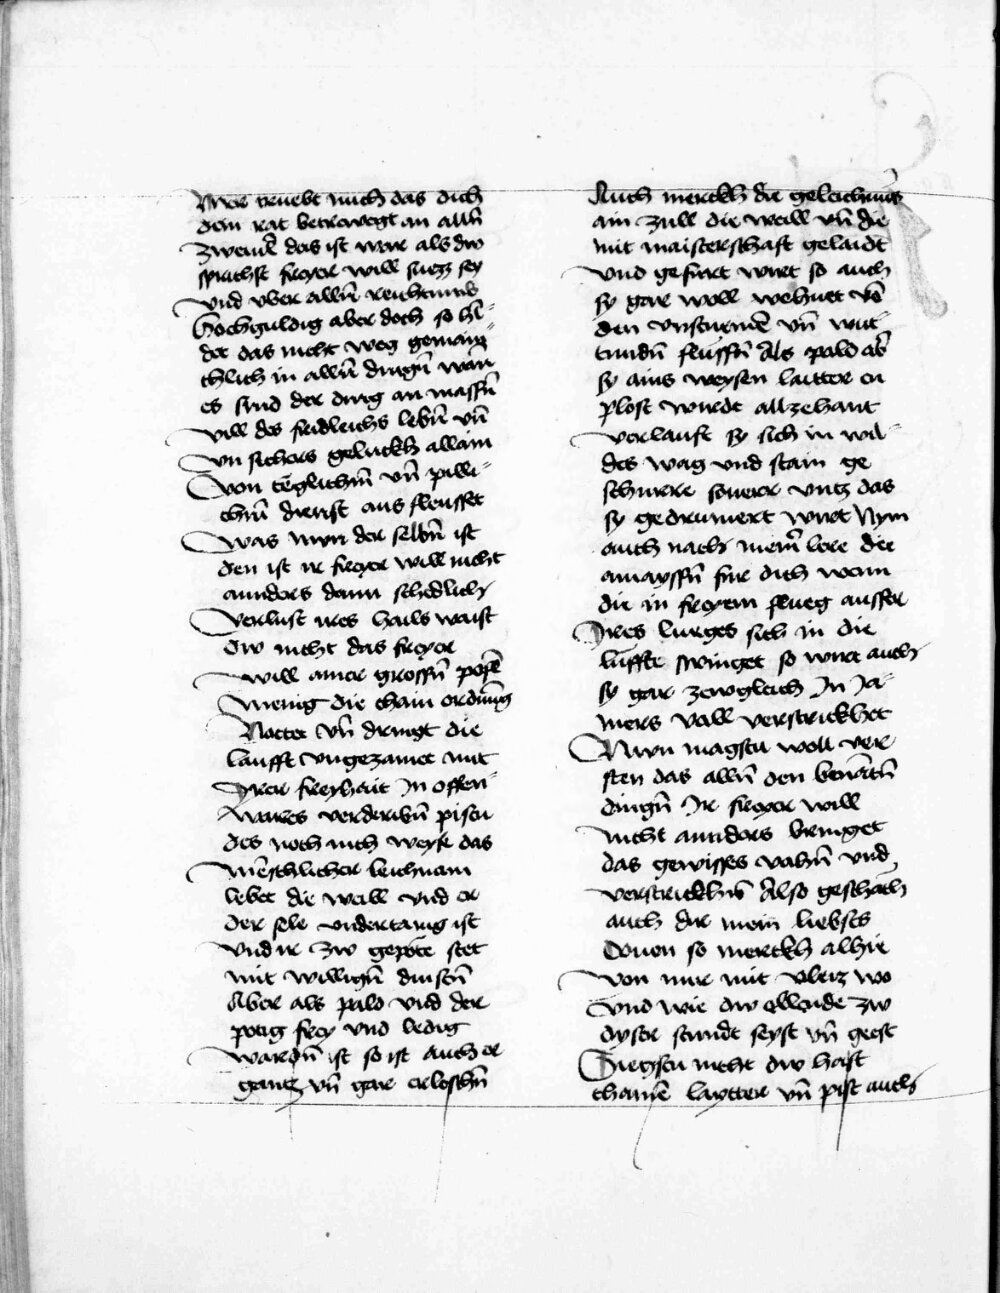 Mer truebt mich das dich
dein rat betrewgt an alln̄
zweiuel das ist war als dw
sprachst freyer will suezz sey
vnd vber alln̄ reichtumb
hochguldig aber doch so hl-
der das nicht weg gemain
chlich in alln̄ dingn̄ wan
es sind der ding an massn̄
vill des fridleichs lebn̄ vn̄
vn sichers geluckh allain
Von teglichm̄ vn̄ pilli-
chm̄ dienst aus fleusset
Was nwn der selbn̄ ist
den ist ir freyer will nicht
annders dann schedlich
Verlust ires hails waist
dw nicht das freyer
will ainer grossn̄ pofl
menig die chain ordnūg
Rottet vn̄ dringt die
laufft vngezamet mit
Irer freyhait In offen-
wares verderibn̄ pistu
des noch nich weyss das
mēschlicher leichnam
lebet die weill vnd er
der sele vndertanig ist
vnd ir zw gepote stet
mit willign̄ dinstn̄
Aber als pald vnd der
potig frey vnd ledig
wardn̄ ist so ist auch er
gantz vn̄ gar erloschn̄
Auch merckh die geleichnus
ain zull die weill vn̄ die
mit maisterschaft gelaidt
vnd gefurt wirt so auch
sy gar woll wehuet vō
den vnsturmē vn̄ wut
tundn̄ flussn̄ Als pald ab
sy ains weysen laitter en
plost wurdt allzehant
verlauft sy sich in wil-
des wag vnd stain ge
schurre souerr vntz das
sy gedrumert wirt Nym
auch nach meīn lere die
amayssn̄ fur dich wenn
die in freyem flueg ausser
Ires lurges sich in die
luffte swinget so wirt auch
sy gar zewgleich In Ja-
mers vall verstrickhet
Nwn magstu woll ver
sten das alln̄ den benātn̄
dingn̄ Ir freyer will
nicht annders bringet
das gewisses valn̄ vnd
verstrickhn̄ Also geschach
auch dir mein liebsts
Ouen so merckh alhie
von mir mit vleiz wo
vnd wie dw ellende zw
dyser stundt seyst vn̄ geest
Siegstu nicht dw hast
chainē laytter vn̄ pist auch